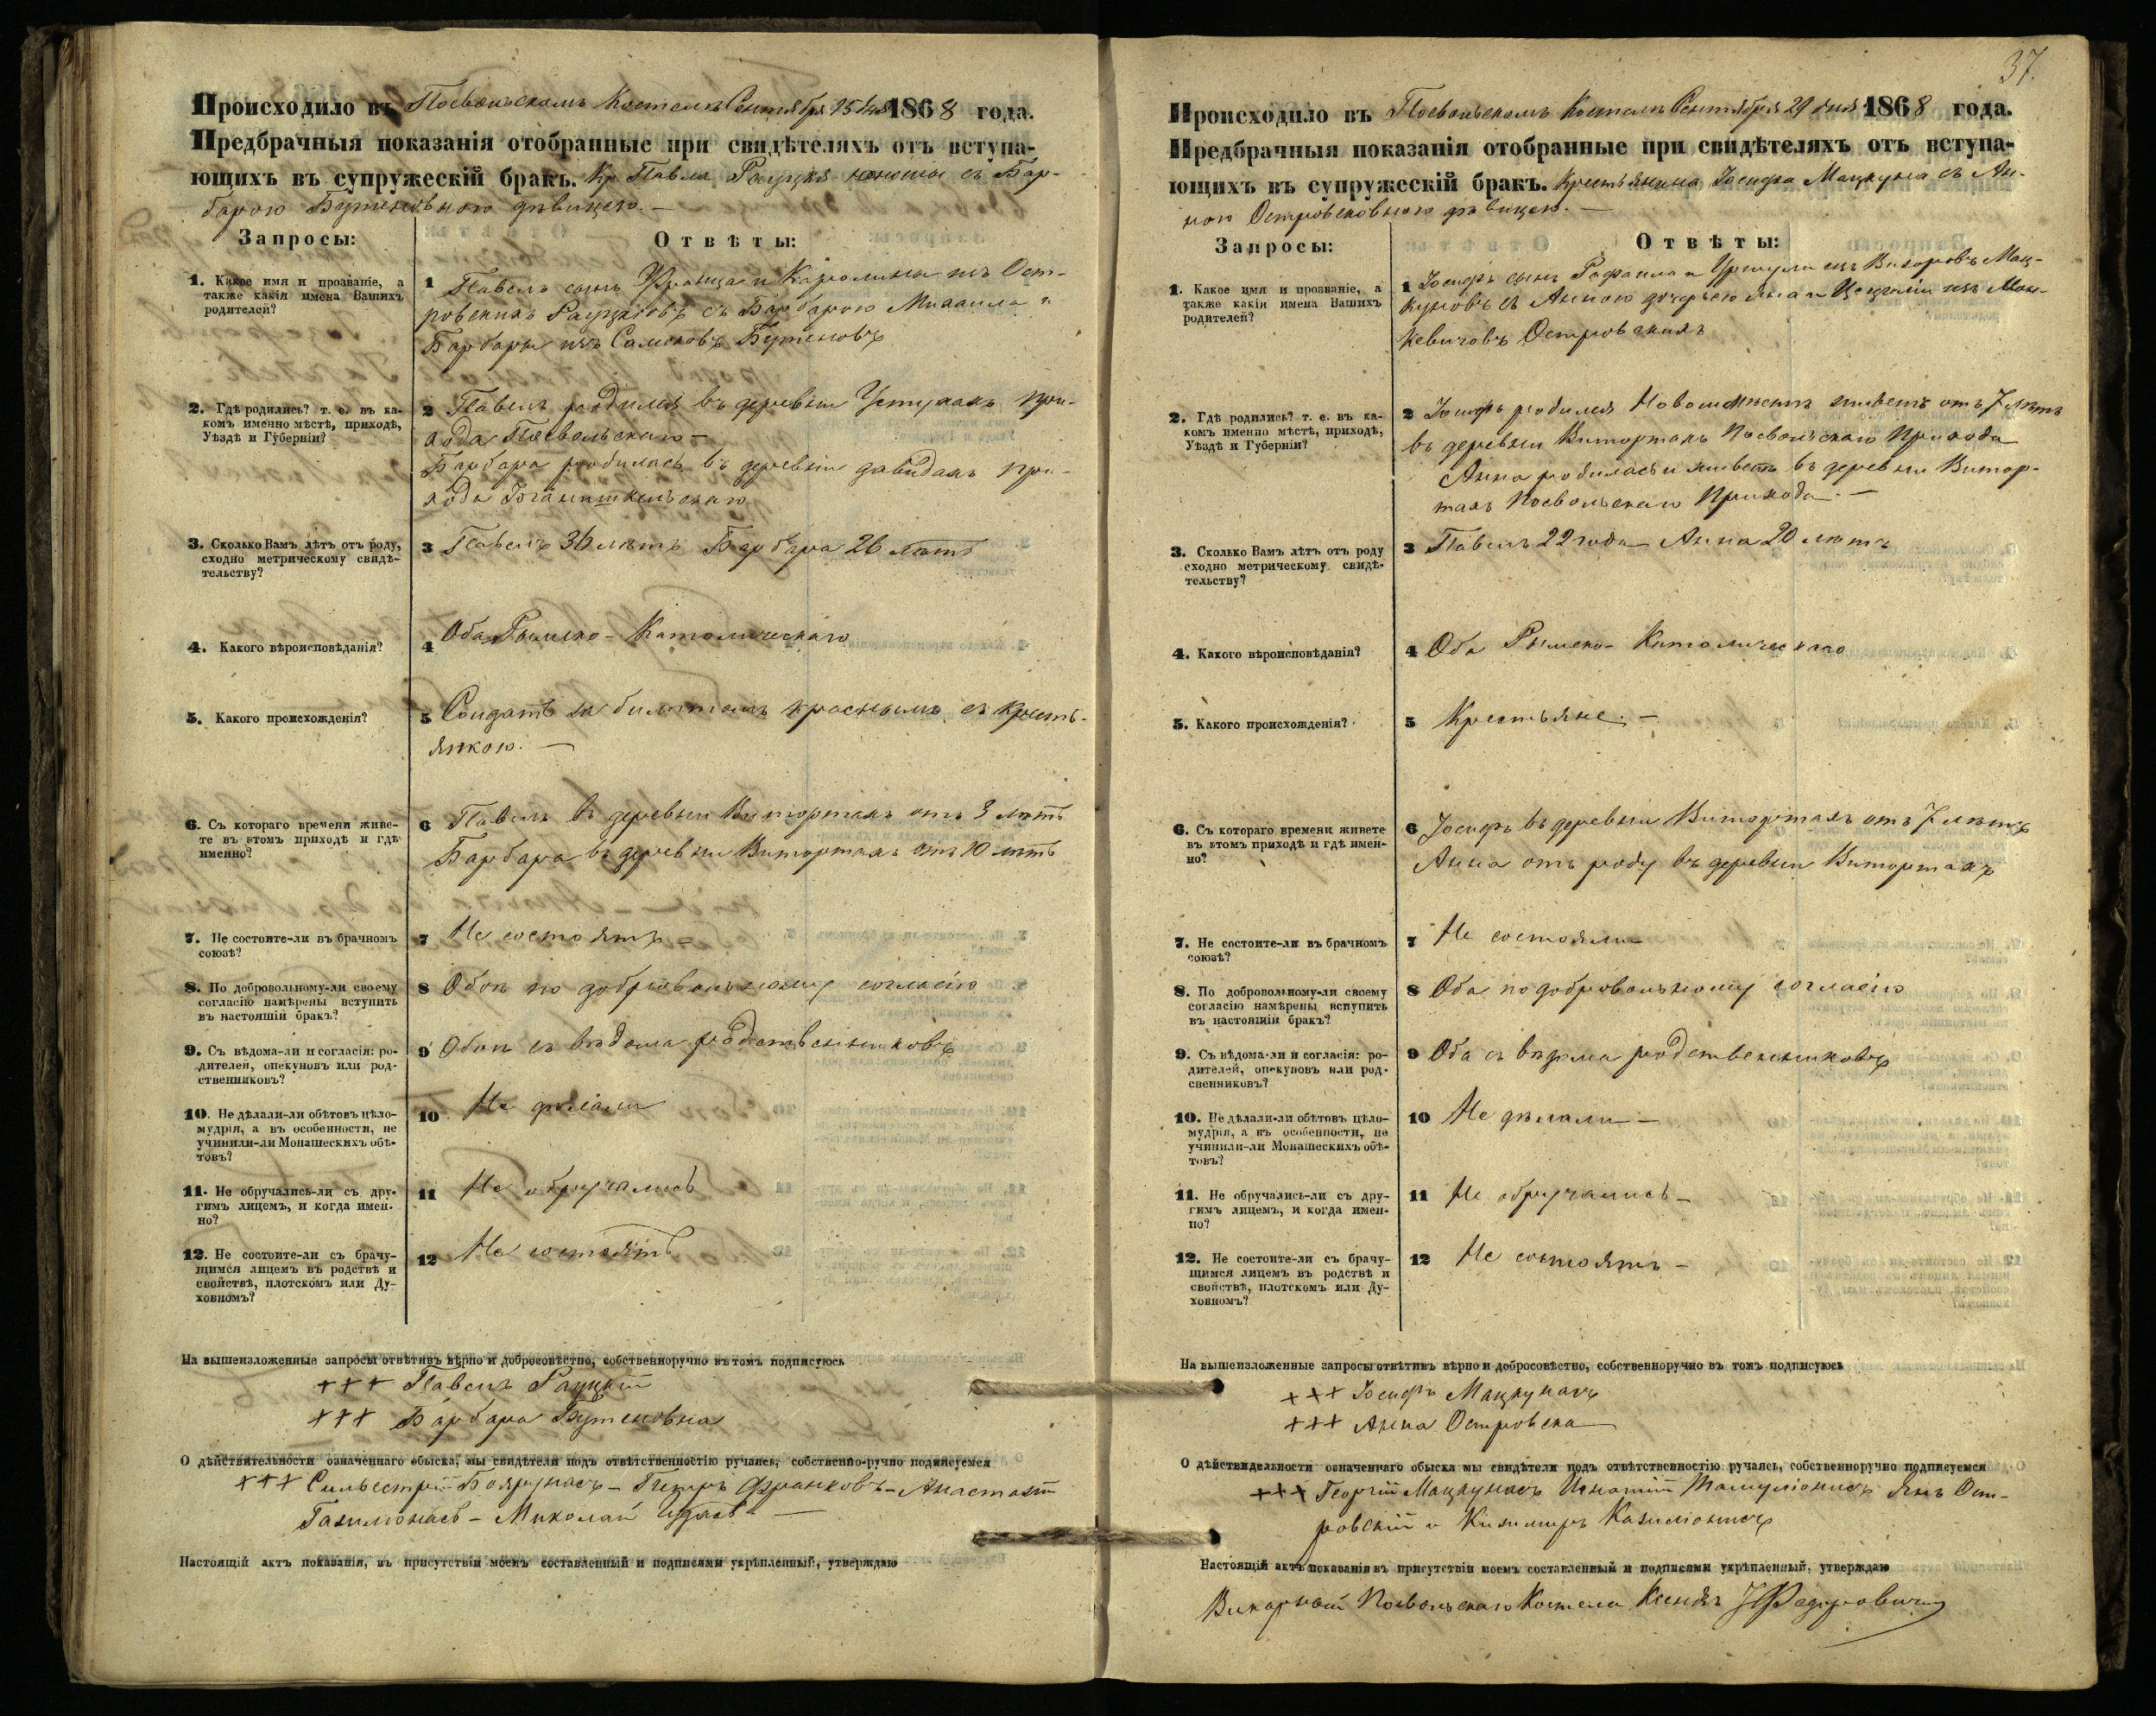 Происходило въ Посвольскомъ Костелѣ Сентября 15 дня 1868 года.
Предбрачныя показанія отобранные при свидѣтеляхъ отъ вступа-
ющихъ въ супружескій бракъ. Кр. Павла юноши съ Бар-
барою Бутеновною дѣвицею. —
Запросы:
Отвѣты:
1. Какое имя и прозваніе, а
также какія имена Вашихъ
родителей?
1 Павелъ сынъ Франца и Каролины изъ Ост-
ровскихъ съ Барбарою Михаила и
Барбары изъ Бутеновъ
2. Гдѣ родились? т. е. въ ка-
комъ именно мѣстѣ, приходѣ,
Уѣздѣ и Губерніи?
2 Павелъ родился въ деревни при-
хода Посвольскаго —
Барбара родилась въ деревни Давидахъ при-
хода Іоганишкельскаго
3. Сколько Вамъ лѣтъ отъ роду,
сходно метрическому свидѣ-
тельству?
3 Павелъ 36 лѣтъ Барбара 26 лѣтъ
4. Какого вѣроисповѣданія?
4 Оба Рымско-Католическаго
5. Какого происхожденія?
5 Солдатъ за билетомъ краснымъ съ кресть-
янкою. —
6. Съ котораго времени живе-
те въ этомъ приходѣ и гдѣ
именно?
6 Павелъ въ деревни Витортахъ отъ 3 лѣтъ
Барбара въ деревни Витортахъ отъ 10 лѣтъ
7. Не состоите-ли въ брачномъ
союзѣ?
7 Не состоятъ —
8. По добровольному-ли своему
согласію намѣрены вступить
въ настоящій бракъ?
8 Обои по добровольному согласію
9. Съ вѣдома-ли и согласія: ро-
дителей, опекуновъ или род-
ственниковъ?
9 Обои съ вѣдома родственниковъ
10. Не дѣлали-ли обѣтовъ цѣло-
мудрія, а въ особенности, не
учинили-ли Монашескихъ обѣ-
товъ?
10 Не дѣлали
11. Не обручались-ли съ дру-
гимъ лицемъ, и когда имен-
но?
11 Не обручались
12. Не состоите-ли съ брачу-
щимся лицемъ въ родствѣ и
свойствѣ, плотскомъ или Ду-
ховномъ?
12 Не состоятъ
На вышеизложенные запросы отвѣтивъ вѣрно и добросовѣстно, собственноручно въ томъ подписуюсь
+++ Павелъ
+++ Барбара Бутеновна
О дѣйствительности означеннаго обыска, мы свидѣтели подъ отвѣтственностію ручаясь, собственно-ручно подписуемся
+++ Сильвестрій Боярунасъ — Петръ Франковъ — Анастазій
— Миколай
Настоящій актъ показанія, въ присутствіи моемъ составленный и подписями укрѣпленный, утверждаю
37.
Происходило въ Посвольскомъ Костелѣ Сентября 29 дня 1868 года.
Предбрачныя показанія отобранные при свидѣтеляхъ отъ вступа-
ющихъ въ супружескій бракъ. Крестьянина Іосифа Мацкуна съ Ан-
ною Островсковною дѣвицею. —
Запросы:
Отвѣты:
1. Какое имя и прозваніе, а
также какія имена Вашихъ
родителей?
1 Іосифъ сынъ Рафаила и Уршули изъ Мац-
куновъ съ Анною дочерью Яна и Цециліи изъ Мон-
кевичовъ Островскихъ
2. Гдѣ родились? т. е. въ ка-
комъ именно мѣстѣ, приходѣ,
Уѣздѣ и Губерніи?
2 Іосифъ родился живетъ отъ 7 лѣтъ
въ деревни Витортахъ Посвольскаго Прихода
Анна родилась и живетъ въ деревни Витор-
тахъ Посвольскаго Прихода. —
3. Сколько Вамъ лѣтъ отъ роду
сходно метрическому свидѣ-
тельству?
3 Павелъ 22 года Анна 20 лѣтъ
4. Какого вѣроисповѣданія?
4 Оба Рымско-Католическаго
5. Какого происхожденія?
5 Крестьяне. —
6. Съ котораго времени живете
въ этомъ приходѣ и гдѣ имен-
но?
6 Іосифъ въ деревни Витортахъ отъ 7 лѣтъ
Анна отъ роду въ деревни Витортахъ
7. Не состоите-ли въ брачномъ
союзѣ?
7 Не состояли
8. По добровольному-ли своему
согласію намѣрены вступить
въ настоящій бракъ?
8 Оба по добровольному согласію
9. Съ вѣдома-ли и согласія: ро-
дителей, опекуновъ или род-
свенниковъ?
9 Оба съ вѣдома родственниковъ
10. Не дѣлали-ли обѣтовъ цѣло-
мудрія, а въ особенности, не
учинили-ли Монашескихъ обѣ-
товъ?
10 Не дѣлали —
11. Не обручались-ли съ дру-
гимъ лицемъ, и когда имен-
но?
11 Не обручались —
12. Не состоите-ли съ брачу-
щимся лицемъ въ родствѣ и
свойствѣ, плотскомъ или Ду-
ховномъ?
12 Не состоятъ —
На вышеизложенные запросы отвѣтивъ вѣрно и добросовѣстно, собственноручно въ томъ подписуюсь
+++ Іосифъ Мацкунасъ
+++ Анна Островска
О дѣйствидельности означеннаго обыска мы свидѣтели подъ отвѣтственностію ручаясь, собственноручно подписуемся
+++ Георгій Мацкунасъ Игнатій Янъ Ост-
ровскій и Казимиръ Казиліонисъ
Настоящій актъ показанія въ присутствіи моемъ составленный и подписями укрѣпленный, утверждаю
Викарный Посвольскаго Костела Ксендзъ